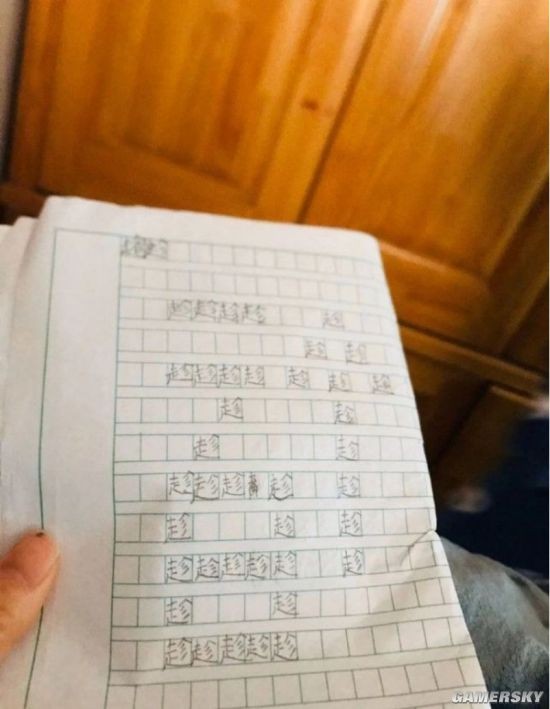 趁趁趁趁 趁
趁 趁
趁趁趁趁 趁 趁 趁
趁 趁
趁 趁
趁趁趁 趁 趁
趁 趁 趁
趁趁趁趁趁 趁
趁 趁
趁趁趁趁趁
GAMERSKY